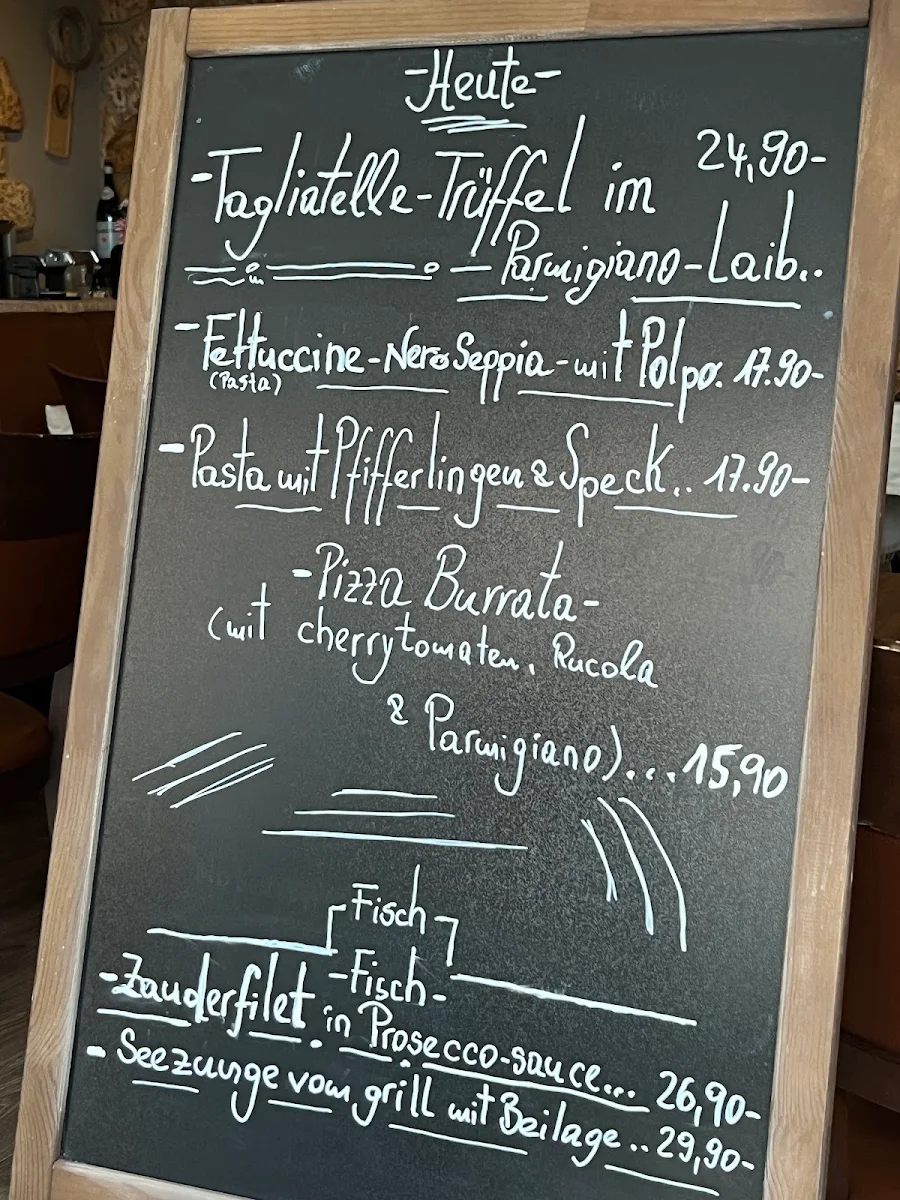 -Heute-
-Tagliatelle-Trüffel im 24,90-
-Parmigiano-Laib..
-Fettuccine-Nero Seppia-mit Polpo. 17.90-
(Pasta)
-Pasta mit Pfifferlingen & Speck.. 17.90-
-Pizza Burrata-
(mit cherrytomaten, Rucola
& Parmigiano)...15,90
Fisch
-Fisch-
-Zanderfilet in Prosecco-sauce... 26,90-
- Seezunge vom grill mit Beilage..29,90-